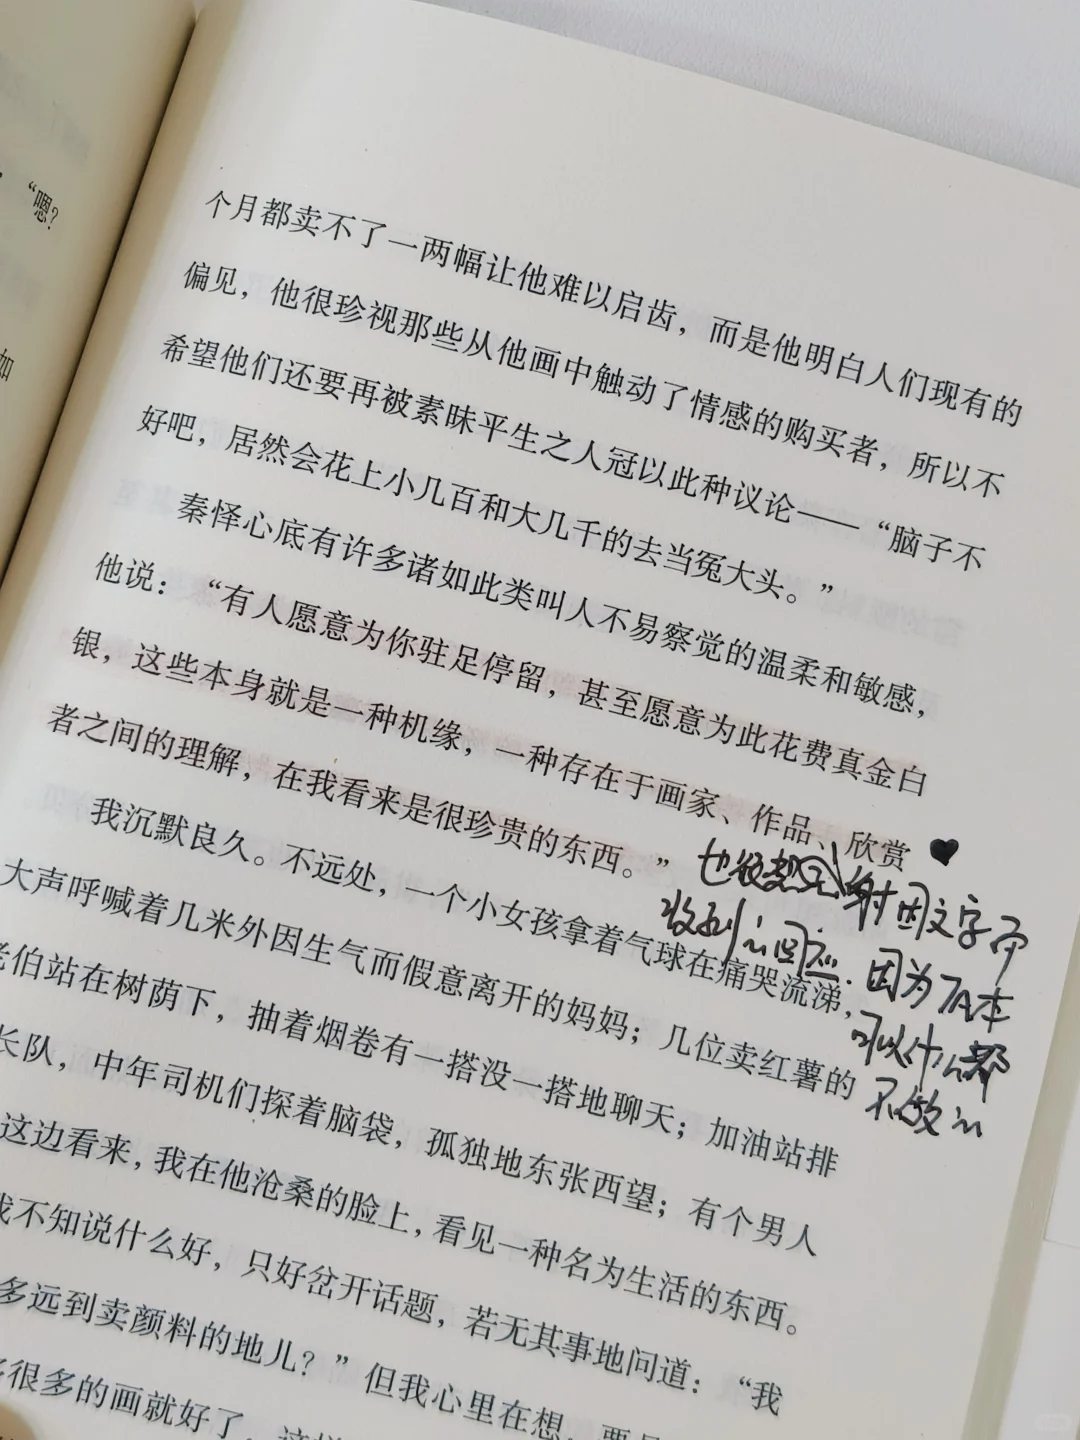 ，“嗯?
如
个月都卖不了一两幅让他难以启齿，而是他明白人们现有的
偏见，他很珍视那些从他画中触动了情感的购买者，所以不
希望他们还要再被素昧平生之人冠以此种议论——“脑子不
好吧，居然会花上小几百和大几千的去当冤大头。”
秦怿心底有许多诸如此类叫人不易察觉的温柔和敏感，
他说：“有人愿意为你驻足停留，甚至愿意为此花费真金白
银，这些本身就是一种机缘，一种存在于画家、作品、欣赏
者之间的理解，在我看来是很珍贵的东西。”
我沉默良久。不远处，一个小女孩拿着气球在痛哭流涕，
大声呼喊着几米外因生气而假意离开的妈妈；几位卖红薯的
老伯站在树荫下，抽着烟卷有一搭没一搭地聊天；加油站排
长队，中年司机们探着脑袋，孤独地东张西望；有个男人
这边看来，我在他沧桑的脸上，看见一种名为生活的东西。
我不知说什么好，只好岔开话题，若无其事地问道：“我
多远到卖颜料的地儿？”但我心里在想，要是
很多的画就好了，这样
也很感谢因文字而
收到的回应.因为TA本
可以什么都
不做的